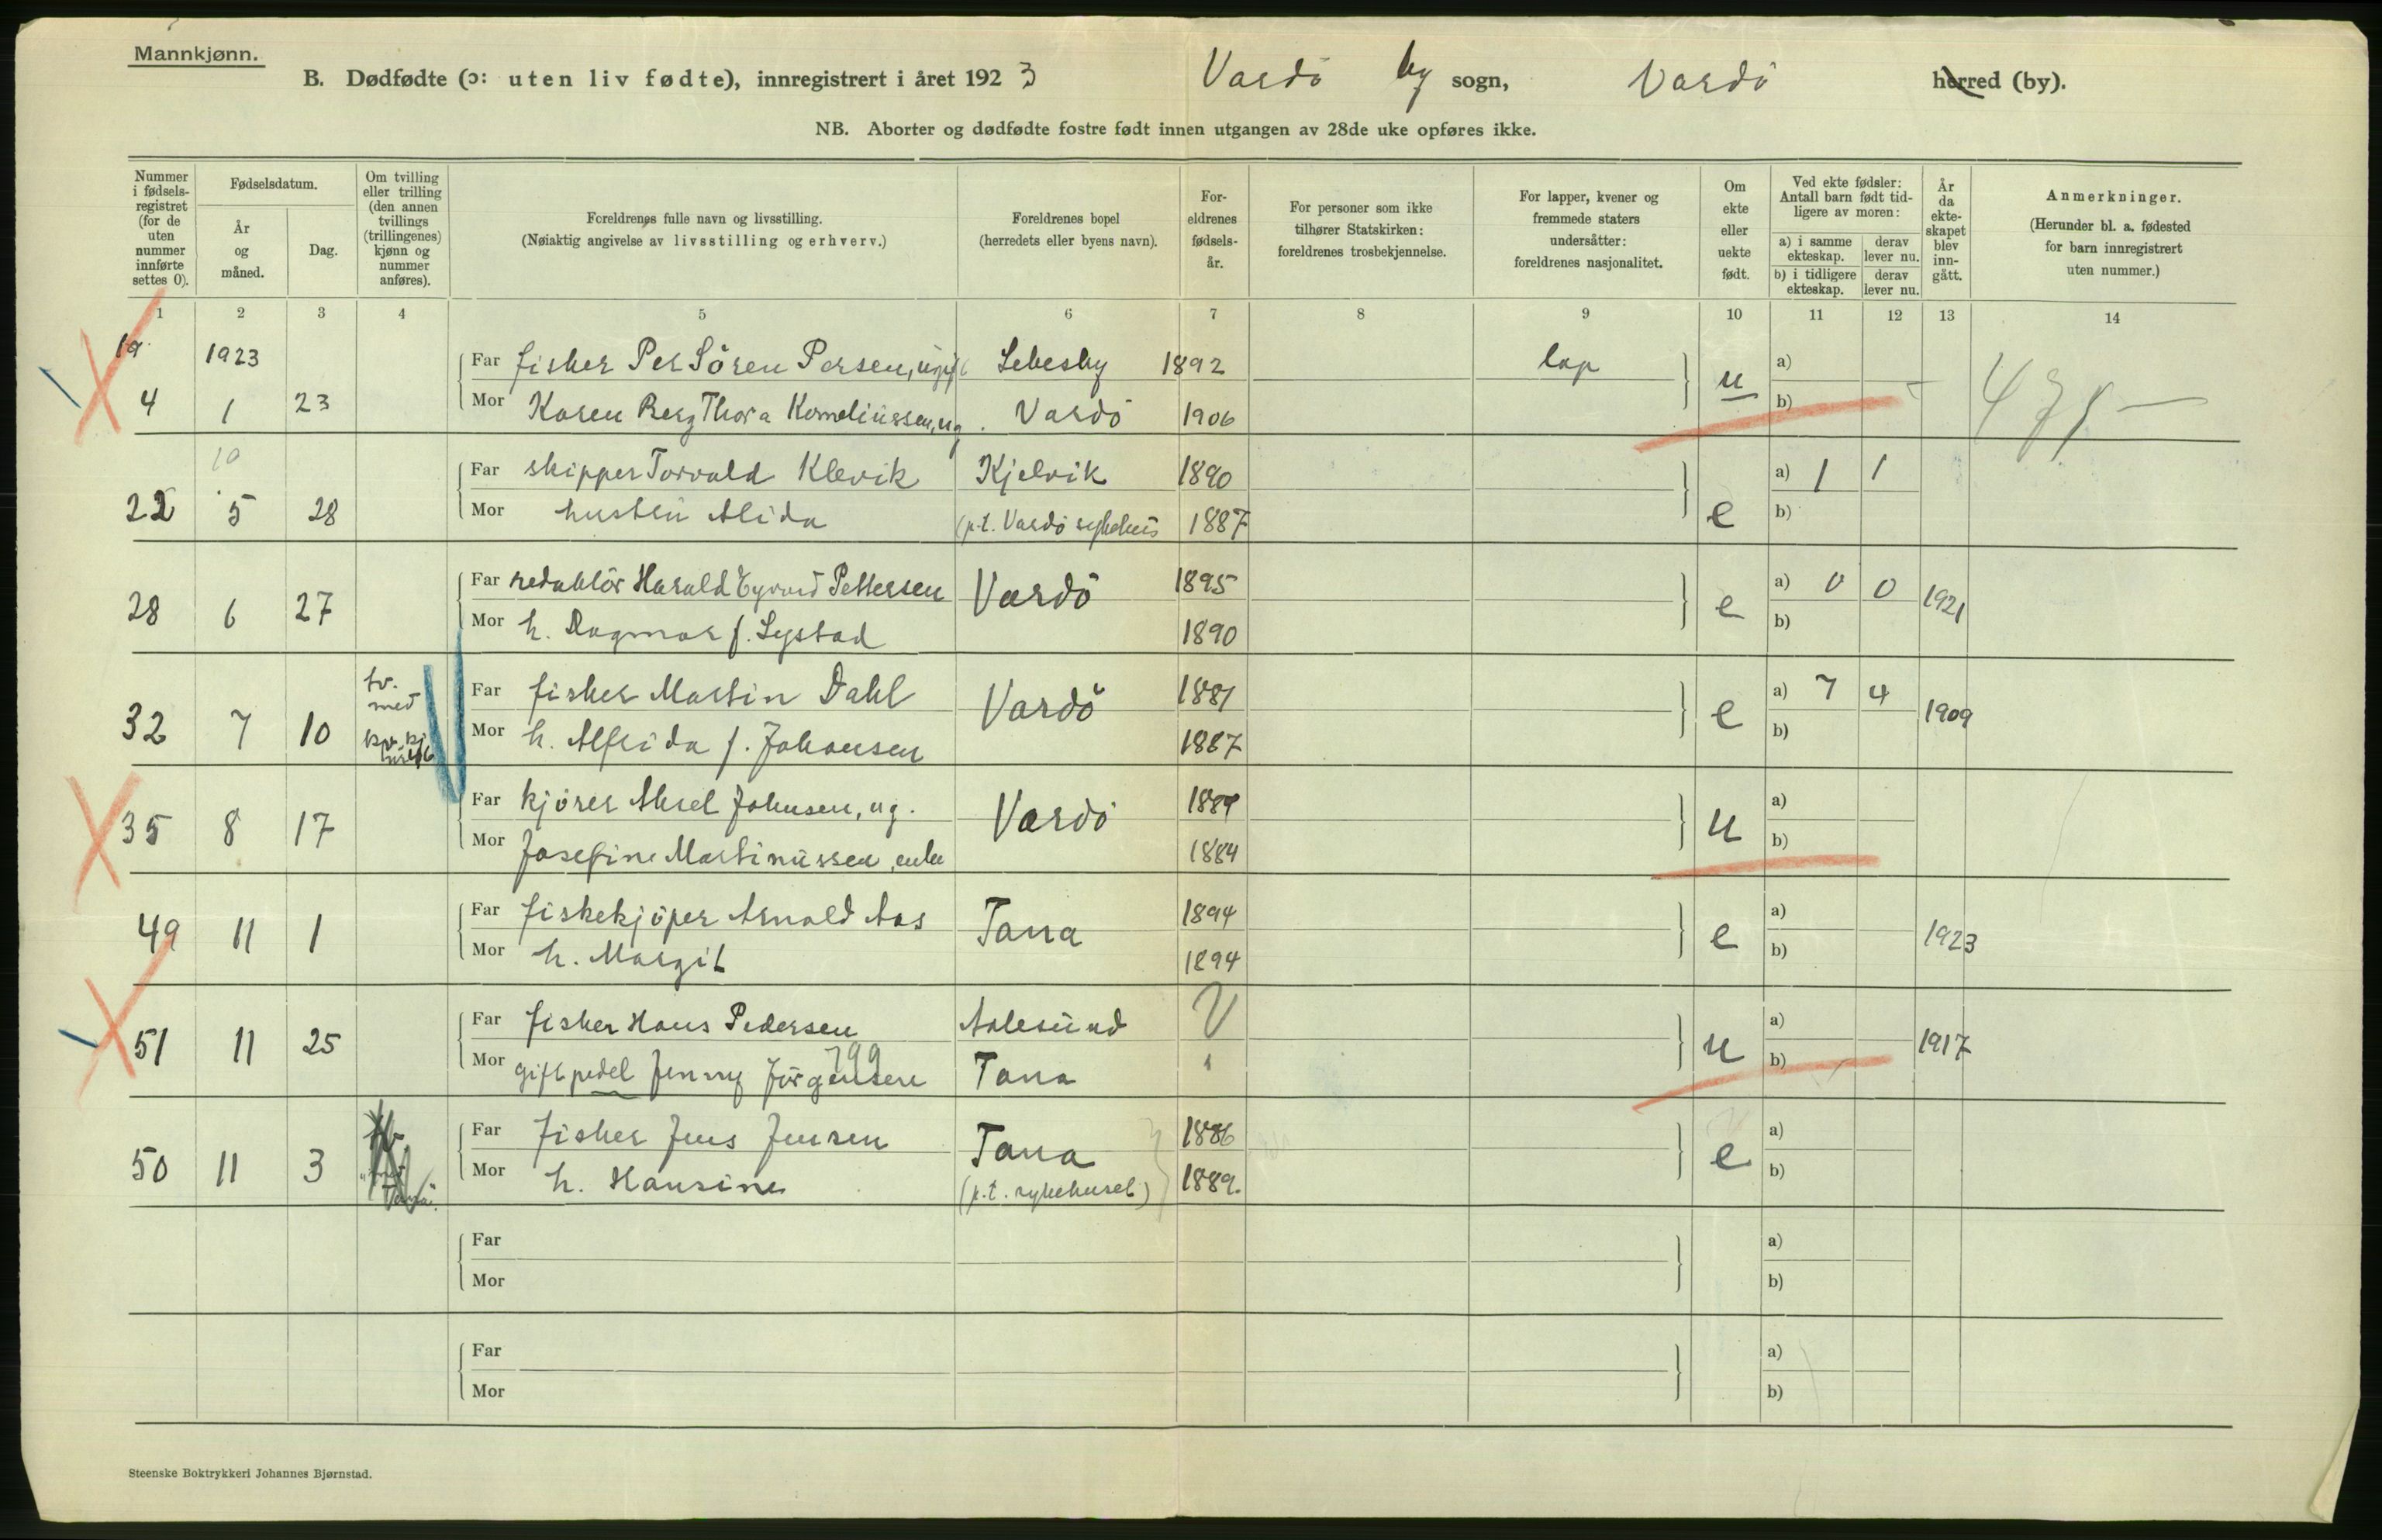 Mannkjønn.
B. Dødfødte (ɔ: uten liv fødte), innregistrert i året 1923 Vardö by sogn, Vardö herred (by).
NB. Aborter og dødfødte fostre født innen utgangen av 28de uke opføres ikke.
Nummer i fødsels-registret (for de uten nummer innførte settes 0).
Fødselsdatum.
År og måned.
Dag.
Om tvilling eller trilling (den annen tvillings (trillingenes) kjønn og nummer anføres).
Foreldrenes fulle navn og livsstilling.
(Nøiaktig angivelse av livsstilling og erhverv.)
Foreldrenes bopel
(herredets eller byens navn).
For-eldrenes fødsels-år.
For personer som ikke tilhører Statskirken: foreldrenes trosbekjennelse.
For lapper, kvener og fremmede staters undersåtter: foreldrenes nasjonalitet.
Om ekte eller uekte født.
Ved ekte fødsler: Antall barn født tid-ligere av moren:
a) i samme ekteskap. derav lever nu.
b) i tidligere ekteskap. derav lever nu.
År da ekte-skapet blev inn-gått.
Anmerkninger.
(Herunder bl. a. fødested for barn innregistrert uten nummer.)
1 2 3 4 5 6 7 8 9 10 11 12 13 14
19 1923 Far fisker Per Sören Persen, ugift Lebesby 1892 lap a)
4 1 23 Mor Karen Berg Thora Korneliussen, ug. Vardö 1906 u b)
10 Far skipper Torvald Klevik Kjelvik 1890 a) 1 1
22 5 28 Mor hustru Alida (p.t. Vardö sykehus 1887 e b)
Far redaktör Harald Eyvind Pettersen Vardö 1895 a) 0 0
28 6 27 Mor h. Dagmar f. Lystad 1890 e b) 1921
tv. med Far fisker Martin Dahl Vardö 1881 a) 7 4
32 7 10 kv. kj. Mor h. Alfrida f. Johansen 1887 e b) 1909
Far kjörer Aksel Johnsen, ug. Vardö 1889 a)
35 8 17 Mor Josefine Martinussen, enke 1884 u b)
Far fiskekjöper Arnold Aas Tana 1894 a)
49 11 1 Mor h. Margit 1894 e b) 1923
Far fisker Hans Pedersen Aalesund a)
51 11 25 Mor gift pedel Jenny Jörgensen Tana u b) 1917
799
Far fisker Jens Jensen Tana 1886 a)
50 11 3 Mor h. Hansine (p.t. sykehuset) 1889. e b)
Far a)
Mor b)
Far a)
Mor b)
Steenske Boktrykkeri Johannes Bjørnstad.